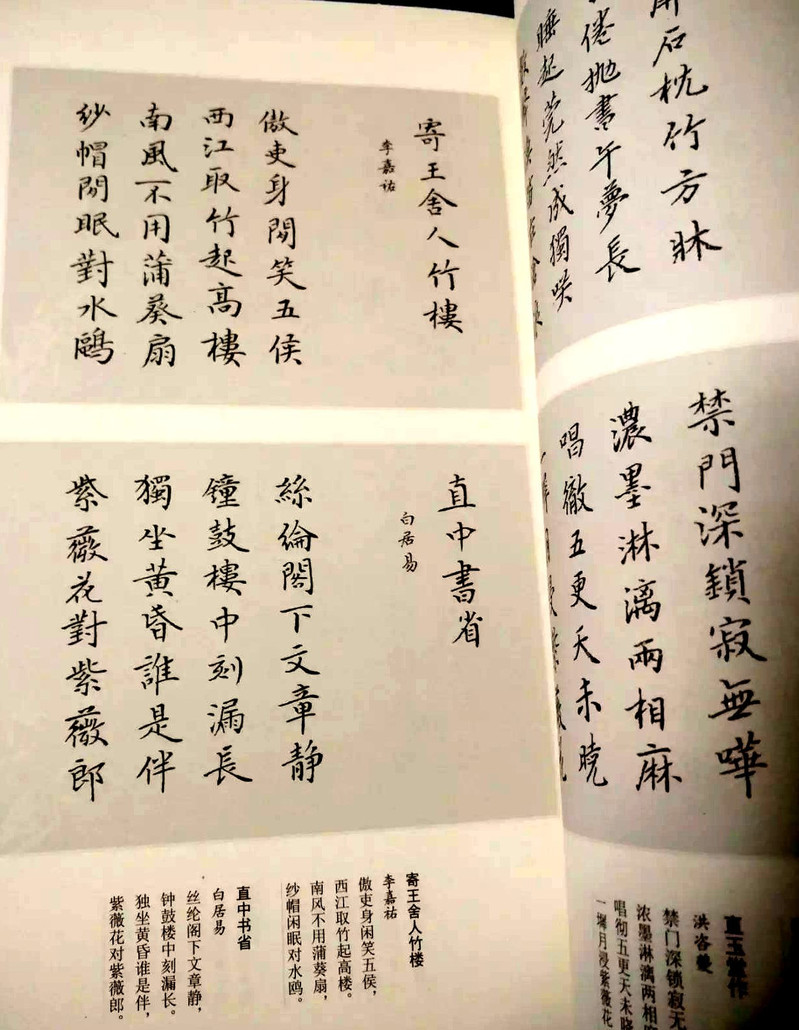 石枕竹方牀
倦抛書午夢長
睡起莞然成獨咲
禁門深鎖寂無嘩
濃墨淋漓兩相麻
唱徹五更天未曉
直玉堂作
洪咨夔
禁门深锁寂无
浓墨淋漓两相
唱彻五更天未晓
一墀月浸紫薇花
寄王舍人竹樓
李嘉祐
傲吏身閒笑五侯
西江取竹起高樓
南風不用蒲葵扇
紗帽閒眠對水鷗
直中書省
白居易
絲綸閣下文章静
鐘鼓樓中刻漏長
獨坐黄昏誰是伴
紫薇花對紫薇郎
寄王舍人竹楼
李嘉祐
傲吏身闲笑五侯，
西江取竹起高楼。
南风不用蒲葵扇，
纱帽闲眠对水鸥。
直中书省
白居易
丝纶阁下文章静，
钟鼓楼中刻漏长。
独坐黄昏谁是伴，
紫薇花对紫薇郎。